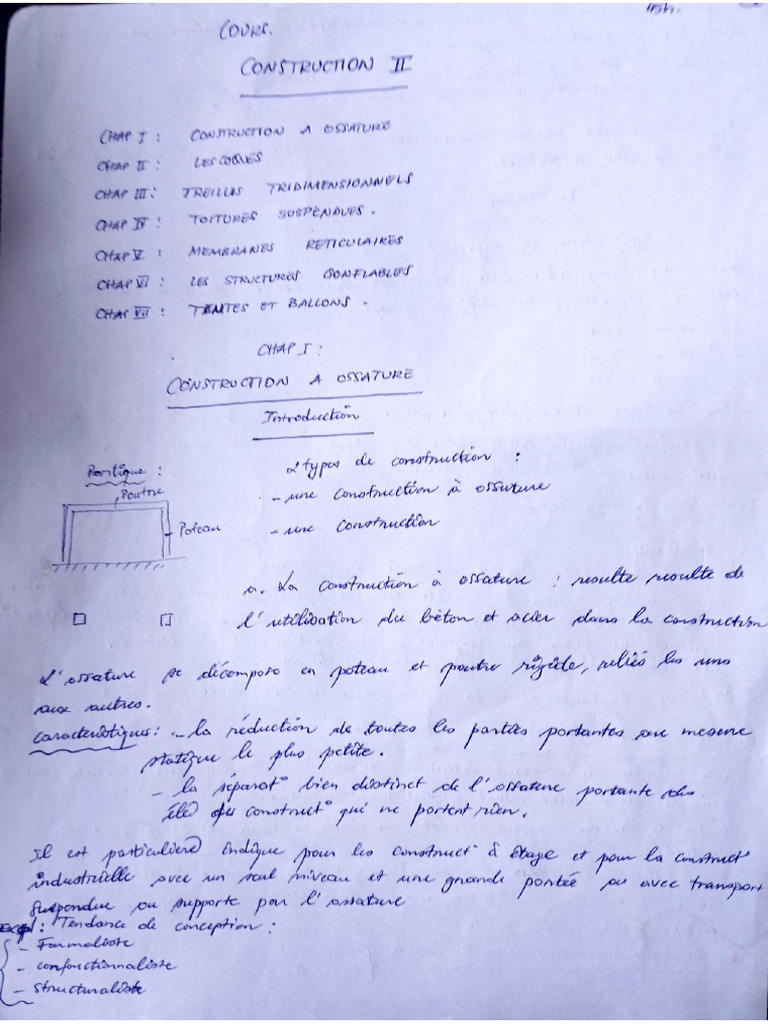 COURS.
CONSTRUCTION II
CHAP I : CONSTRUCTION A OSSATURE
CHAP II : LES COQUES
CHAP III : TREILLIS TRIDIMENSIONNELS
CHAP IV : TOITURES SUSPENDUES.
CHAP V : MEMBRANES RETICULAIRES
CHAP VI : LES STRUCTURES GONFLABLES
CHAP VII : TENTES ET BALLONS.
CHAP I :
CONSTRUCTION A OSSATURE
Introduction
Portique :
Poutre
Poteau
2 types de construction :
- une construction à ossature
- une construction
a. La construction à ossature : resulte resulte de
l'utilisation du béton et acier dans la construction
L'ossature se décompose en poteau et poutre rigide, reliés les uns
aux autres.
caracteristiques : - la réduction de toutes les parties portantes au mesure
statique le plus petite.
- la séparat° bien distinct de l'ossature portante des
élé construct° qui ne portent rien.
Il est particulière indique pour les construct° à étage et pour la construct°
industrielle avec un seul niveau et une grande portée ou avec transport
suspendue ou supporte par l'ossature
Exple : Tendance de conception :
- Formaliste
- confonctionnaliste
- structuraliste